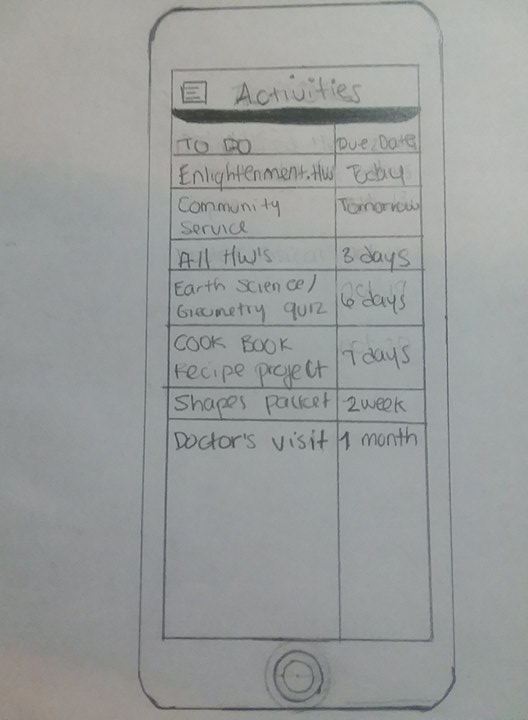 Activities
TO DO Due Date
Enlightenment.Hw Today
Community Tomorrow
Service
All Hw's 3 days
Earth Science/ 6 days
Geometry quiz
COOK BOOK 7 days
Recipe project
Shapes packet 2 week
Doctor's visit 1 month